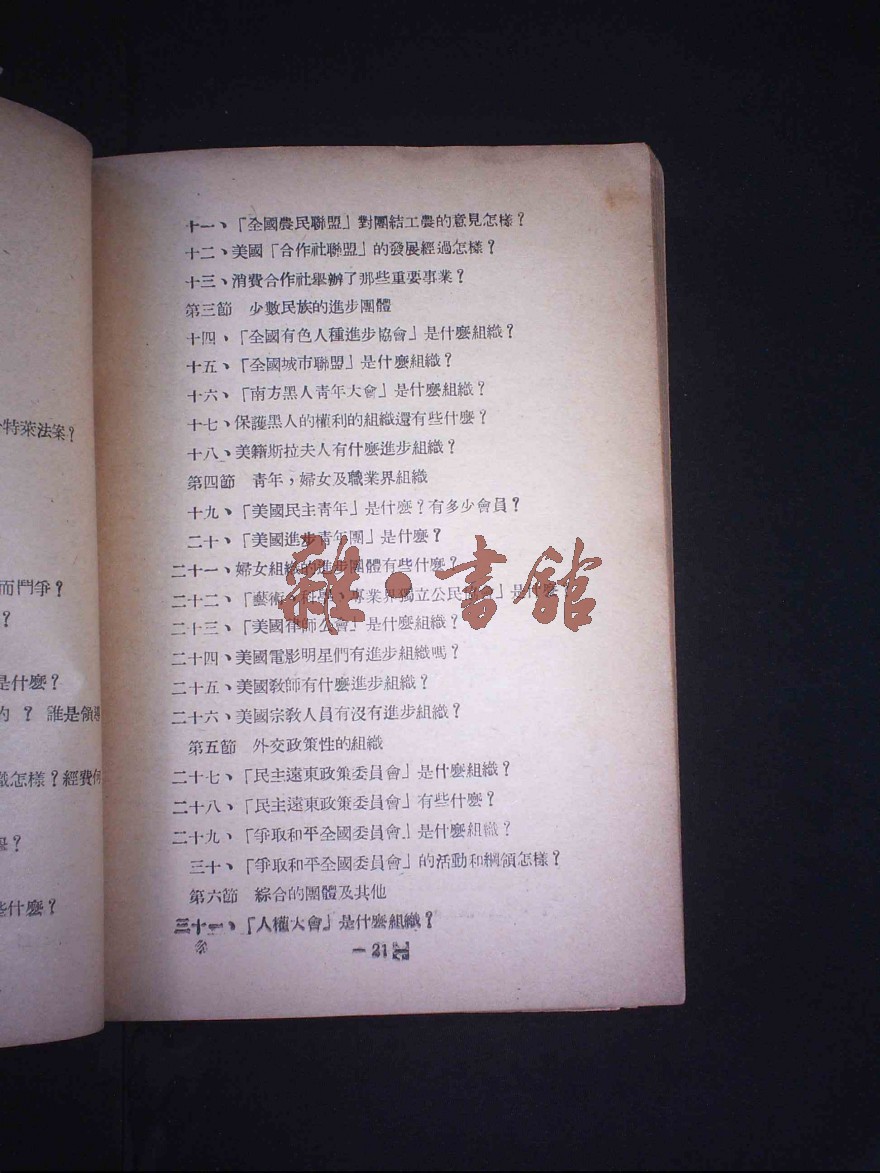 十一、「全國農民聯盟」對團結工農的意見怎樣？
十二、美國「合作社聯盟」的發展經過怎樣？
十三、消費合作社舉辦了那些重要事業？
第三節　少數民族的進步團體
十四、「全國有色人種進步協會」是什麼組織？
十五、「全國城市聯盟」是什麼組織？
十六、「南方黑人青年大會」是什麼組織？
十七、保護黑人的權利的組織還有些什麼？
十八、美籍斯拉夫人有什麼進步組織？
第四節　青年，婦女及職業界組織
十九、「美國民主青年」是什麼？有多少會員？
二十、「美國進步青年團」是什麼？
二十一、婦女組織的進步團體有些什麼？
二十二、「藝術、科學、專業界獨立公民會」是什麼？
二十三、「美國律師公會」是什麼組織？
二十四、美國電影明星們有進步組織嗎？
二十五、美國敎師有什麼進步組織？
二十六、美國宗敎人員有沒有進步組織？
第五節　外交政策性的組織
二十七、「民主遠東政策委員會」是什麼組織？
二十八、「民主遠東政策委員會」有些什麼？
二十九、「爭取和平全國委員會」是什麼組織？
三十、「爭取和平全國委員會」的活動和綱領怎樣？
第六節　綜合的團體及其他
三十一、「人權大會」是什麼組織？
— 21 —
特萊法案？
而鬥爭？
？
是什麼？
的？誰是領
織怎樣？經費
？
些什麼？
雜·書館